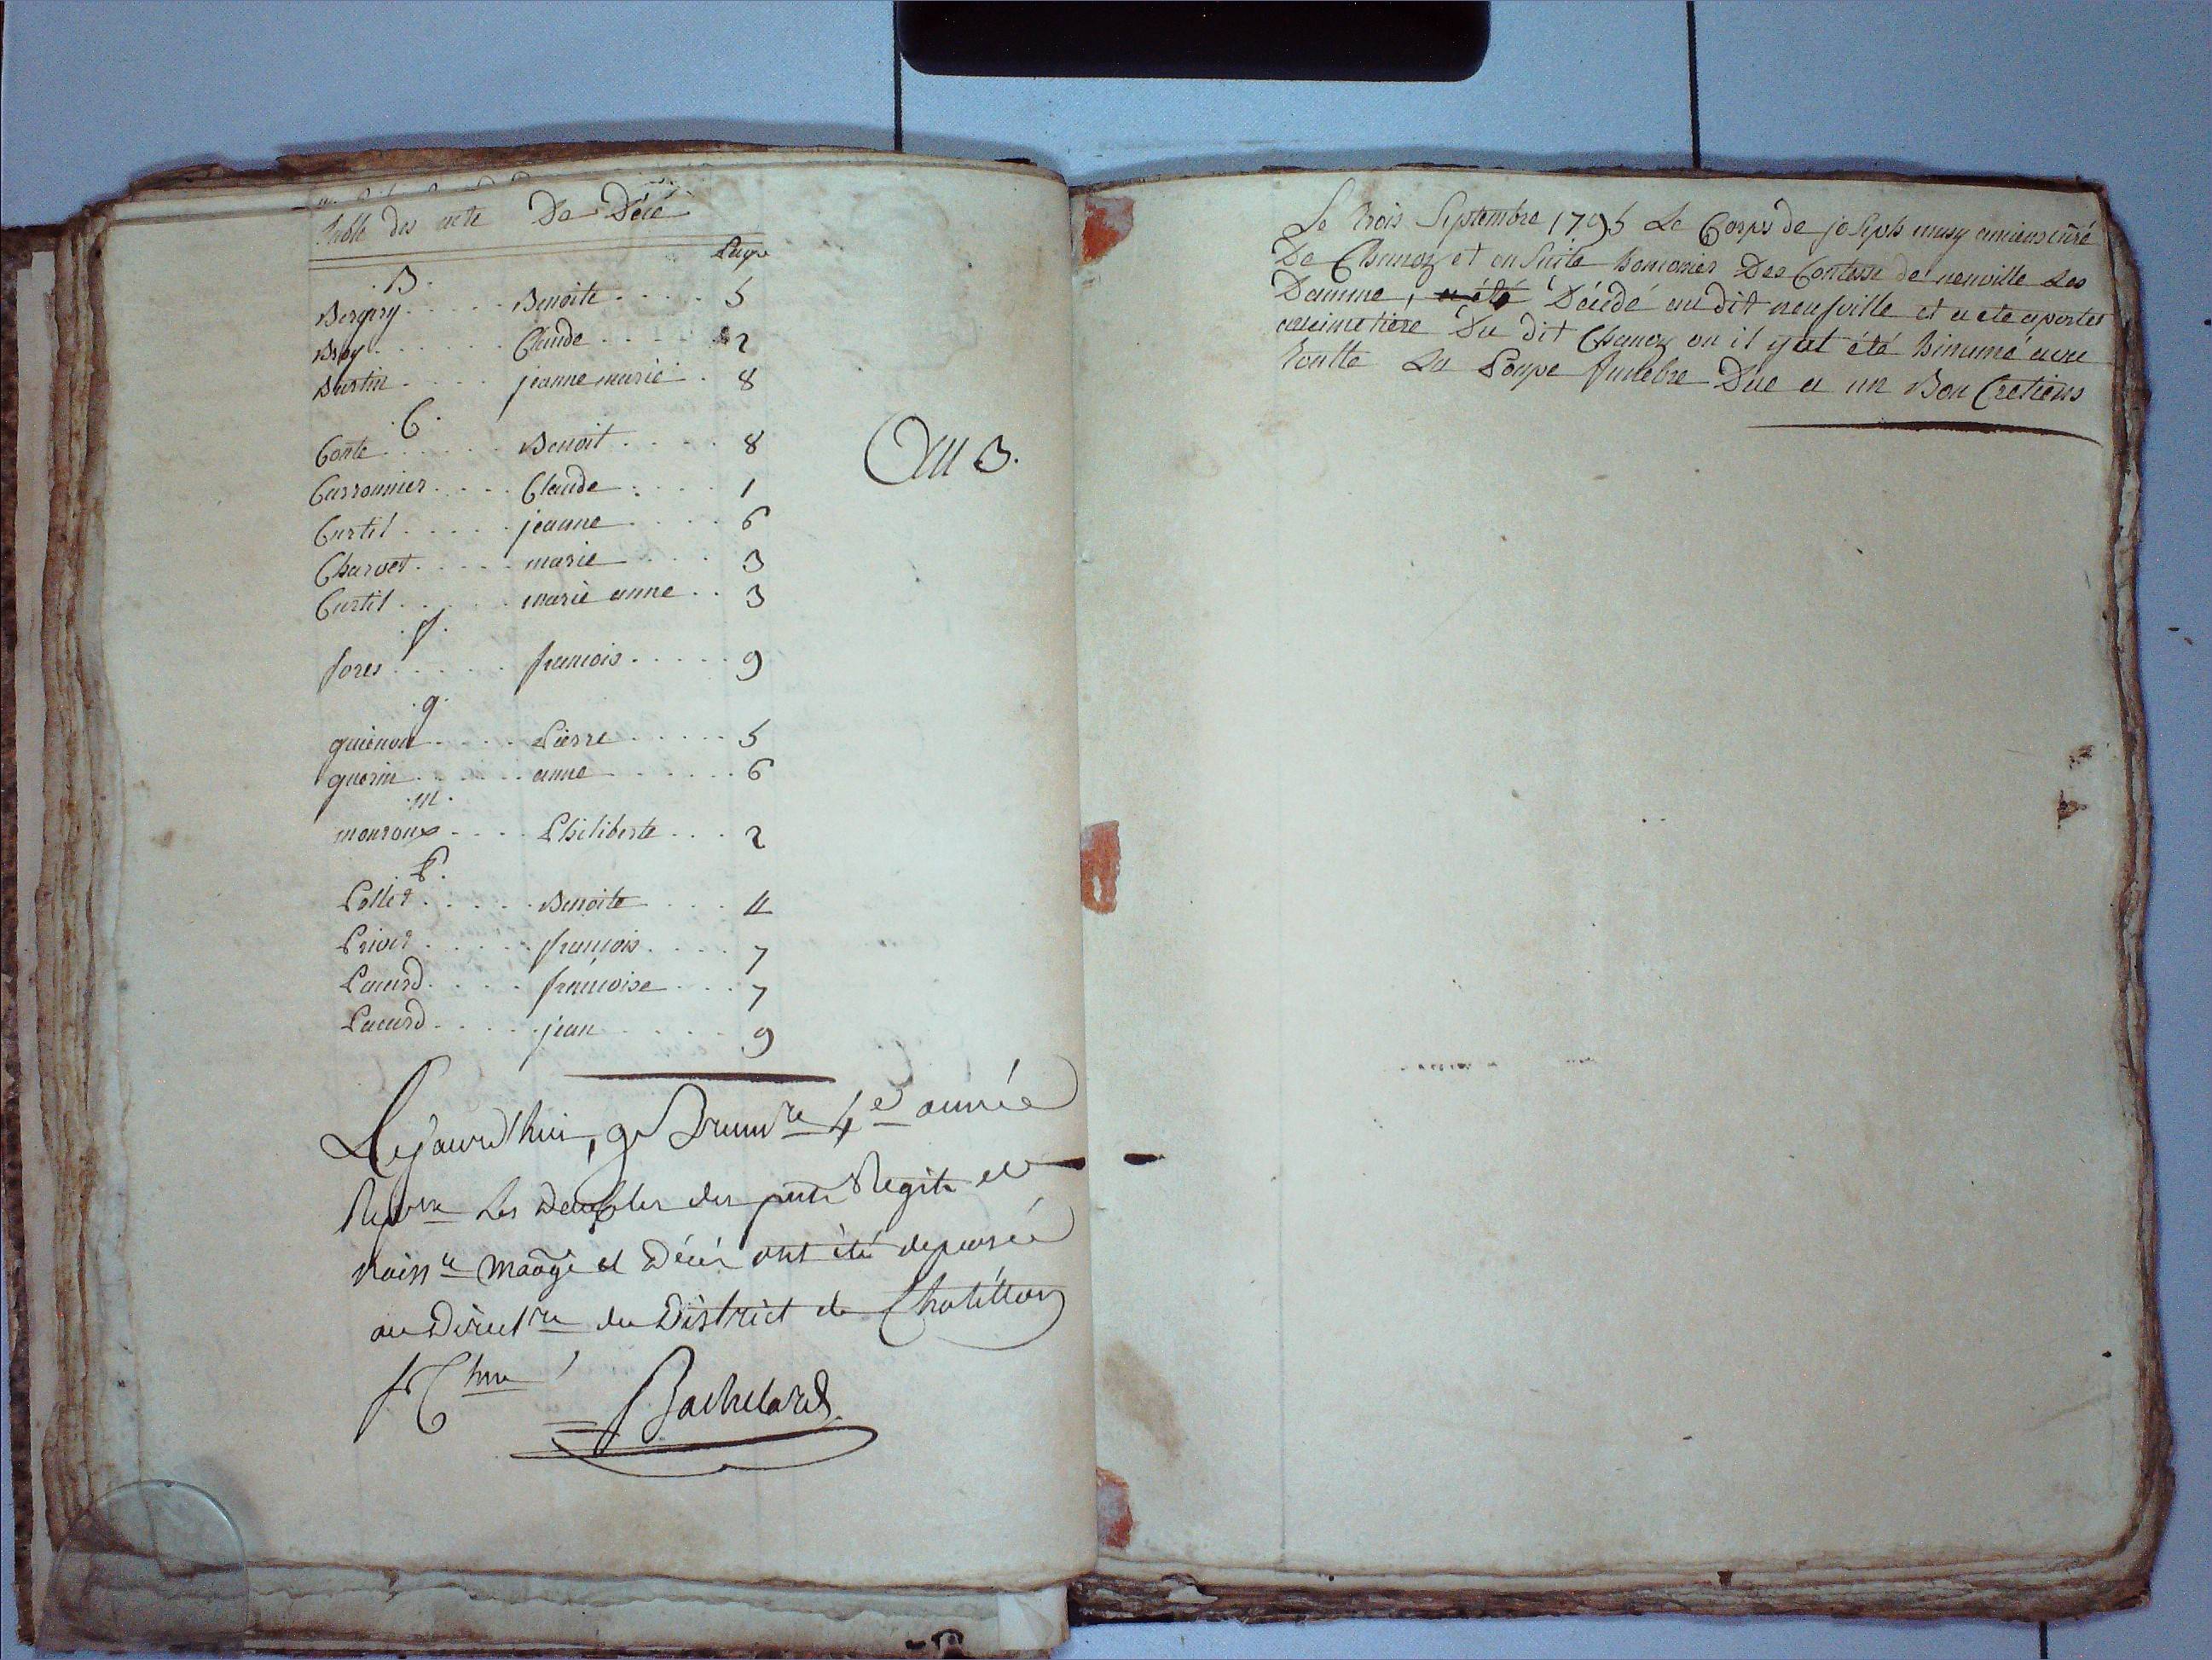 Table des acte De Décé
Page
.B.
Bergery Benoite 5
Broy Claude 2
Burtin jeanne marie 8
.C.
Conte Benoit 8
Carronnier Claude 1
Curtil jeanne 6
Charvet marie 3
Curtil marie anne 3
.f.
fores francois 9
.g.
guienon Pierre 5
guerin anne 6
.m.
monroux Philiberte 2
.P.
Pollet Benoite 4
Privet françois 7
Pacard françoise 7
Pacard jean 9
An 3.
Cejourdhui, 9 Brumre 4e année
Les Doubles des pnts Regitr et
naissce Marage et Décès ont été deposée
au Directre du District de Chatillon
Bachelard
Le trois Septembre 1795 Le Corps de joseph musy ancien curé
De Chanoz et en suite homonier Des Contesse de neuville Les
Damme, a été Décédé au dit neufville et a ete aportes
au cimetiere Du dit Chanoz ou il y at été hinumé avec
toutte La Pompe funebre Due a un Bon Cretiens